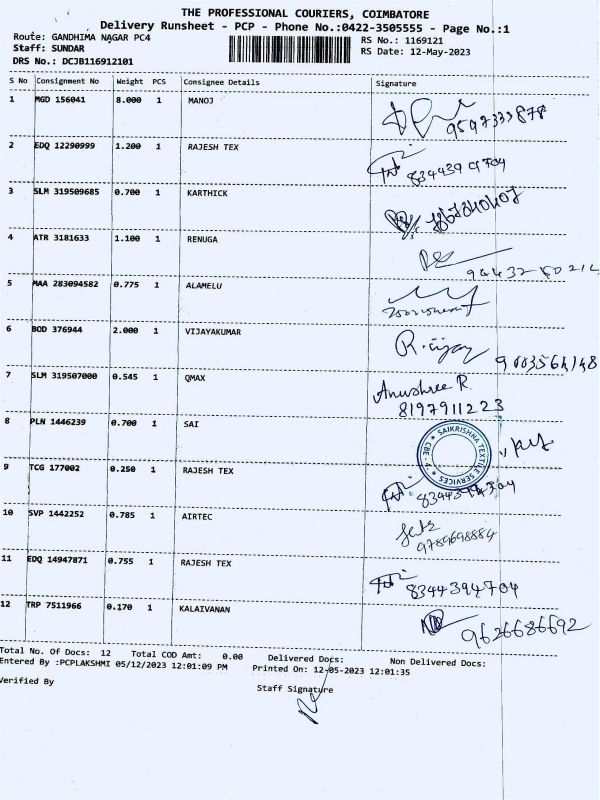 THE PROFESSIONAL COURIERS, COIMBATORE
Delivery Runsheet - PCP - Phone No.:0422-3505555 - Page No.:1
Route: GANDHIMA NAGAR PC4
RS No.: 1169121
Staff: SUNDAR
RS Date: 12-May-2023
DRS No.: DCJB116912101
S No Consignment No Weight PCS Consignee Details Signature
1 MGD 156041 8.000 1 MANOJ
9597333878
2 EDQ 12290999 1.200 1 RAJESH TEX
3 SLM 319509685 0.700 1 KARTHICK
4 ATR 3181633 1.100 1 RENUGA
5 MAA 283094582 0.775 1 ALAMELU
6 BOD 376944 2.000 1 VIJAYAKUMAR
R.
7 SLM 319507000 0.545 1 QMAX Anushree R.
8197911223
8 PLN 1446239 0.700 1 SAI
SAIKRISHNA TEXTILE SERVICES
CBE - 4
9 TCG 177002 0.250 1 RAJESH TEX
8344394704
10 SVP 1442252 0.785 1 AIRTEC
9789698884
11 EDQ 14947871 0.755 1 RAJESH TEX
8344394704
12 TRP 7511966 0.170 1 KALAIVANAN
9626686692
Total No. Of Docs: 12 Total COD Amt: 0.00 Delivered Docs: Non Delivered Docs:
Entered By :PCPLAKSHMI 05/12/2023 12:01:09 PM Printed On: 12-05-2023 12:01:35
Verified By
Staff Signature